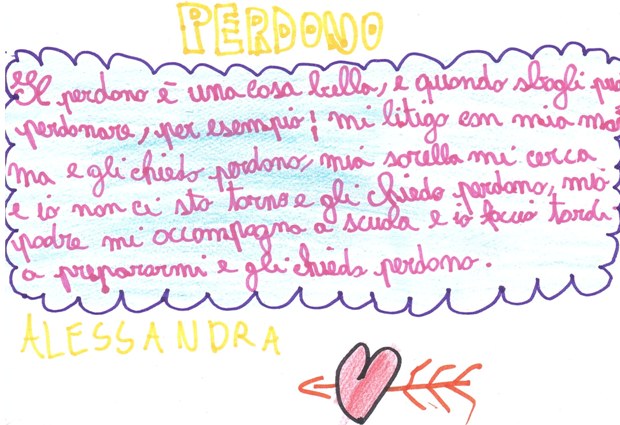 PERDONO
Il perdono è una cosa bella, e quando sbagli puoi
perdonare, per esempio! mi litigo con mia mam
ma e gli chiedo perdono, mia sorella mi cerca
e io non ci sto torno e gli chiedo perdono, mio
padre mi accompagna a scuola e io faccio tardi
a prepararmi e gli chiedo perdono.
ALESSANDRA